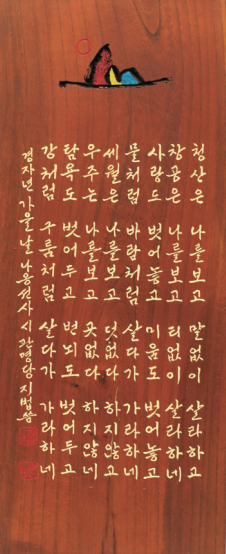 청산은 나를보고 말없이 살라하고
창공은 나를보고 티없이 살라하네
사랑도 벗어놓고 미움도 벗어놓고
물처럼 바람처럼 살다가 가라하네
세월은 나를보고 덧없다 하지않고
우주는 나를보고 곳없다 하지않네
탐욕도 벗어두고 번뇌도 벗어두고
강처럼 구름처럼 살다가 가라하네
경자년 가을날 나옹선사 시 지법씀